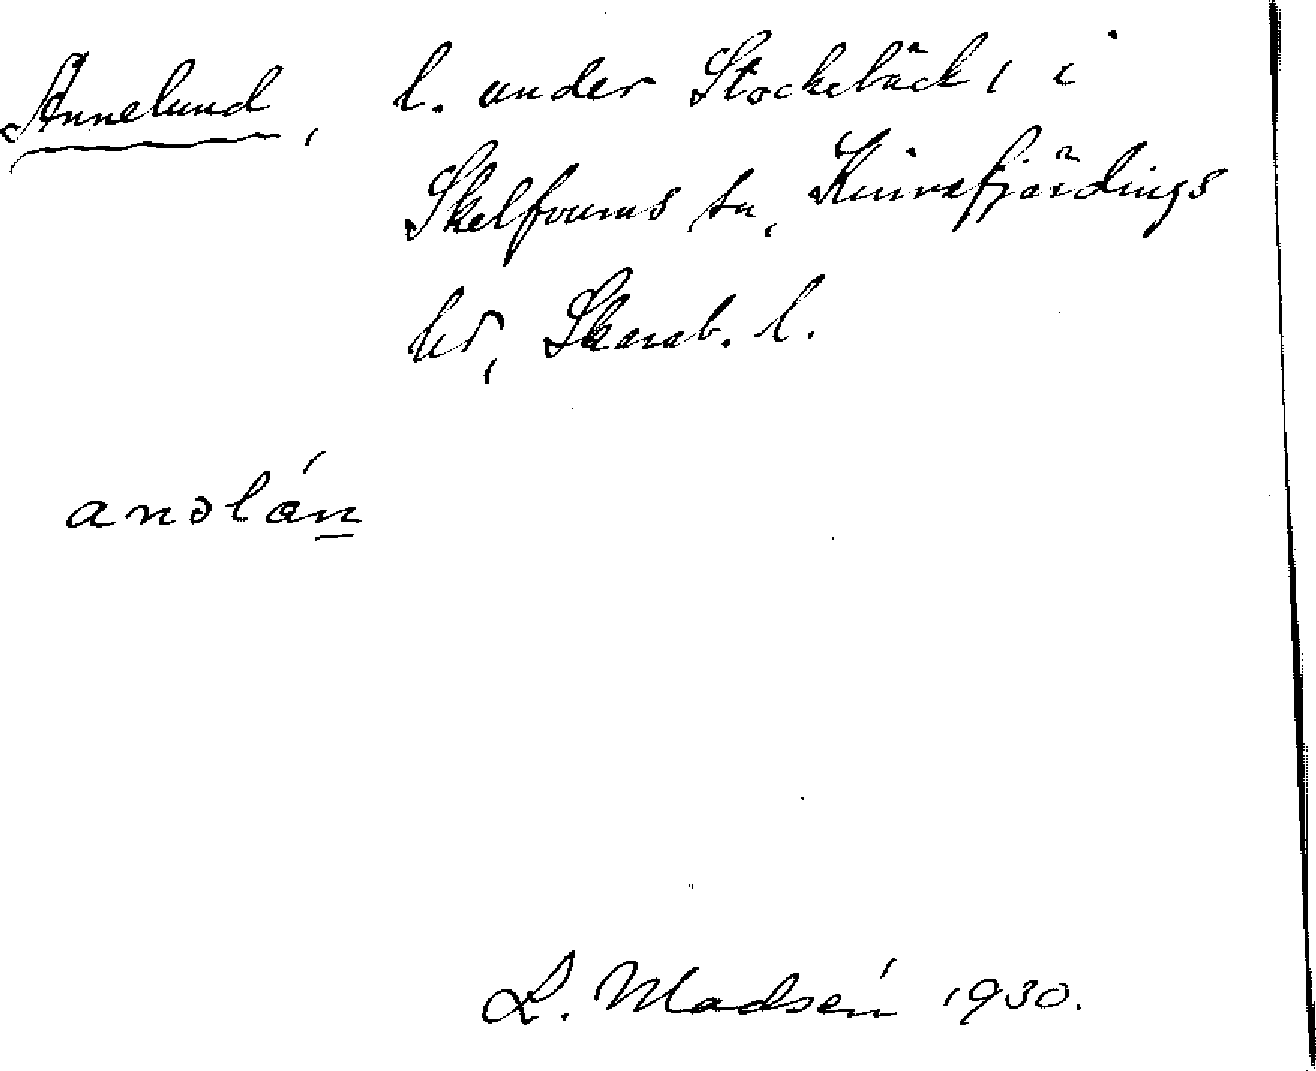 Annelund, l. under Stockebäck, i
Skelfvums sn, Kinnefjärdings
hd, Skarab. l.
anəlán
L. Madsén 1930.